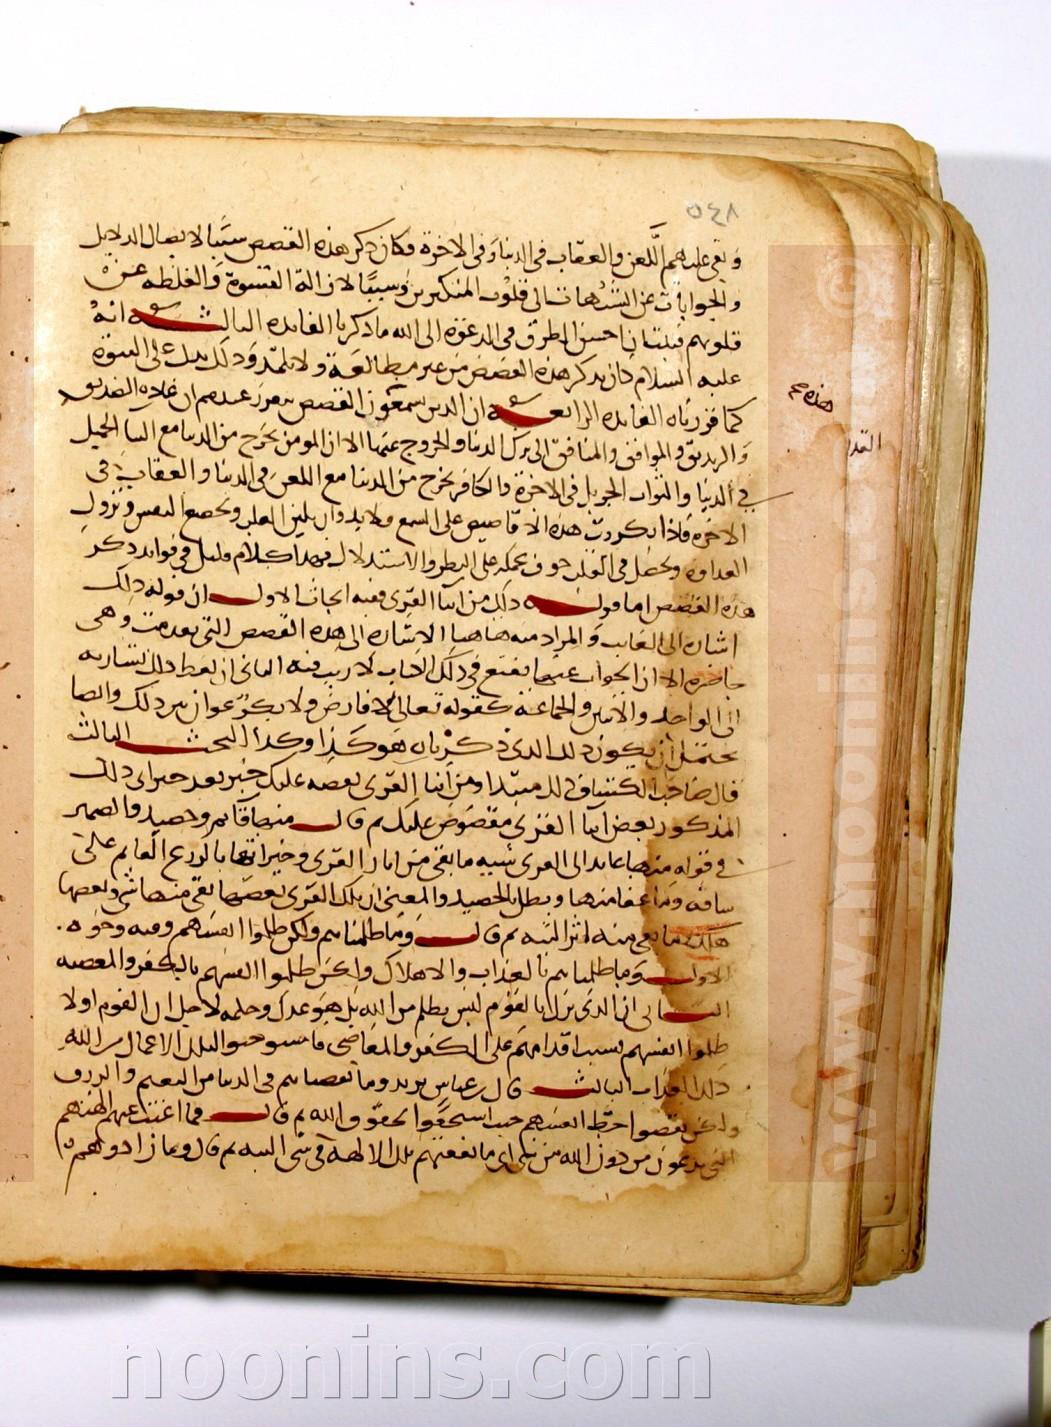 ٥٤٨
وبقى عليهم اللعن والعقاب فى الدنيا وفى الاخرة فكان ذكر هذه القصص سببا لايصال الدلايل
والجوابات عن الشبهات الى قلوب المنكرين وسببا لازالة القسوة والغلظه عن
قلوبهم فثبت ان احسن الطرق فى الدعوة الى الله ما ذكرنا الفايده الثالثه انه
عليه السلام كان يذكر هذه القصص من غير مطالعة ولا تلمذ وذلك يدل على النبوة
كما قررناه الفايده الرابعه ان الذين يسمعون القصص يتقرر عندهم ان عاقبة الصديق
والزنديق والموافق والمنافق الى ترك الدنيا والخروج عنها الا ان المومن يخرج من الدنيا مع الثنا الجميل
فى الدنيا والثواب الجزيل فى الاخرة والكافر يخرج من الدنيا مع اللعن فى الدنيا والعقاب فى
الاخره فاذا تكررت هذه الاقاصيص على السمع فلا بد وان يلين القلب وتخضع النفس وتزول
العداوه ويحصل فى القلب خوف يحمله على النظر والاستدلال فهذا كلام قليل فى فوايد ذكر
هذه القصص اما قوله ذلك من انبا القرى ففيه ابحاث الاول ان قوله ذلك
اشاره الى الغايب والمراد منه هاهنا الاشاره الى هذه القصص التى تقدمت وهى
حاضره الا ان الجواب عنه ما تقدم فى ذلك الكتاب لا ريب فيه الثانى ان لفظ ذلك يشار به
الى الواحد والاثنين والجماعة كقوله تعالى لا فارض ولا بكر عوان بين ذلك وايضا
يحتمل ان يكون ذلك الذى ذكرناه هو كذا وكذا البحث الثالث
قال صاحب الكشاف ذلك مبتدا ومن انبا القرى نقصه عليك خبر بعد خبر اى ذلك
المذكور بعض انبا القرى مقصوص عليك ثم قال منها قايم وحصيد والضمير
فى قوله منها عايد الى القرى شبه ما بقى من اثار القرى وجدرانها بالزرع القايم على
ساقه وما عفا منها وبطل بالحصيد والمعنى ان تلك القرى بعضها بقى منها شى وبعضها
هلك ما بقى منه اثر البته ثم قال وما ظلمناهم ولكن ظلموا انفسهم وفيه وجوه
الاول وما ظلمناهم بالعذاب والاهلاك ولكن ظلموا انفسهم بالكفر والمعصيه
الثانى ان الذى نزل بالقوم ليس بظلم من الله بل هو عدل وحكمه لاجل ان القوم اولا
ظلموا انفسهم بسبب اقدامهم على الكفر والمعاصى فاستوجبوا لتلك الاعمال من الله
ذلك العذاب الثالث قال ابن عباس يريد وما نقصناهم فى الدنيا من النعيم والرزق
ولكن نقصوا حظ انفسهم حيث استخفوا بحقوق الله ثم قال فما اغنت عنهم الهتهم
التى يدعون من دون الله من شى اى ما نفعتهم تلك الالهة فى شى البته ثم قال وما زادوهم
هذه
القد
www.noonins
noonins.com